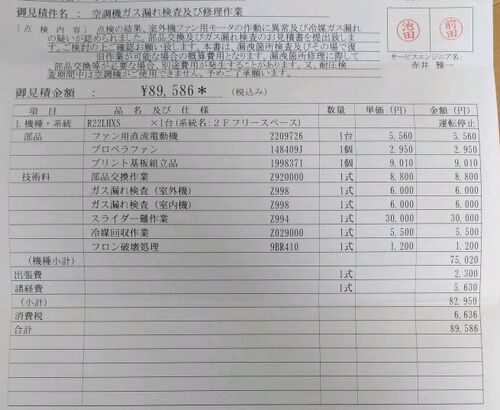 御見積件名 : 空調機ガス漏れ検査及び修理作業
(点検内容) 点検の結果、室外機ファン用モータの作動に異常及び冷媒ガス漏れ
の疑いが認められました。部品交換及びガス漏れ検査のお見積書を提出致しま
す。ご検討の上ご確認お願い致します。本書は、漏洩箇所検査及びその場で復
旧作業が可能な場合の概算費用となります。漏洩箇所修理に際して
部品交換等が必要な場合、別途費用が発生することがあります。又、耐圧検
査期間中は空調機がご使用できません。予めご了承願います。
池田 前田
サービスエンジニア名:
赤井 雅一
御見積金額 : ¥89,586* (税込み)
項 目 品 名 及 び 仕 様 数量 単価(円) 金額(円)
1.機種・系統 R22LHXS ×1台(系統名:2Fフリースペース) 運転停止
部品 ファン用直流電動機 2209726 1台 5,560 5,560
プロペラファン 148409J 1個 2,950 2,950
プリント基板組立品 1998371 1個 9,010 9,010
技術料 部品交換作業 Z920000 1式 8,800 8,800
ガス漏れ検査(室外機) Z998 1式 6,000 6,000
ガス漏れ検査(室内機) Z998 1式 6,000 6,000
スライダー難作業 Z994 1式 30,000 30,000
冷媒回収作業 Z029000 1式 5,500 5,500
フロン破壊処理 9BR410 1式 1,200 1,200
(機種小計) 75,020
出張費 1式 2,300
諸経費 1式 5,630
(小計) 82,950
消費税 6,636
合計 89,586